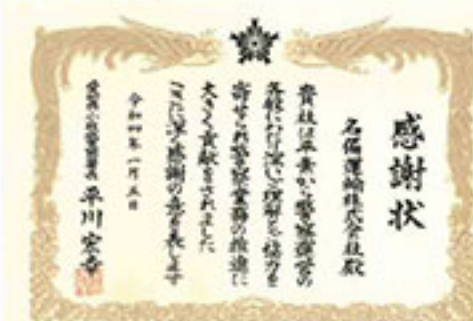 感謝状
名備運輸株式会社殿
貴社は平素から警察運営の
各般にわたり深いご理解と協力を
寄せられ警察業務の推進に
大きく貢献をされました
ここに深く感謝の意を表します
令和四年一月五日
愛知県小牧警察署長 平川宏幸